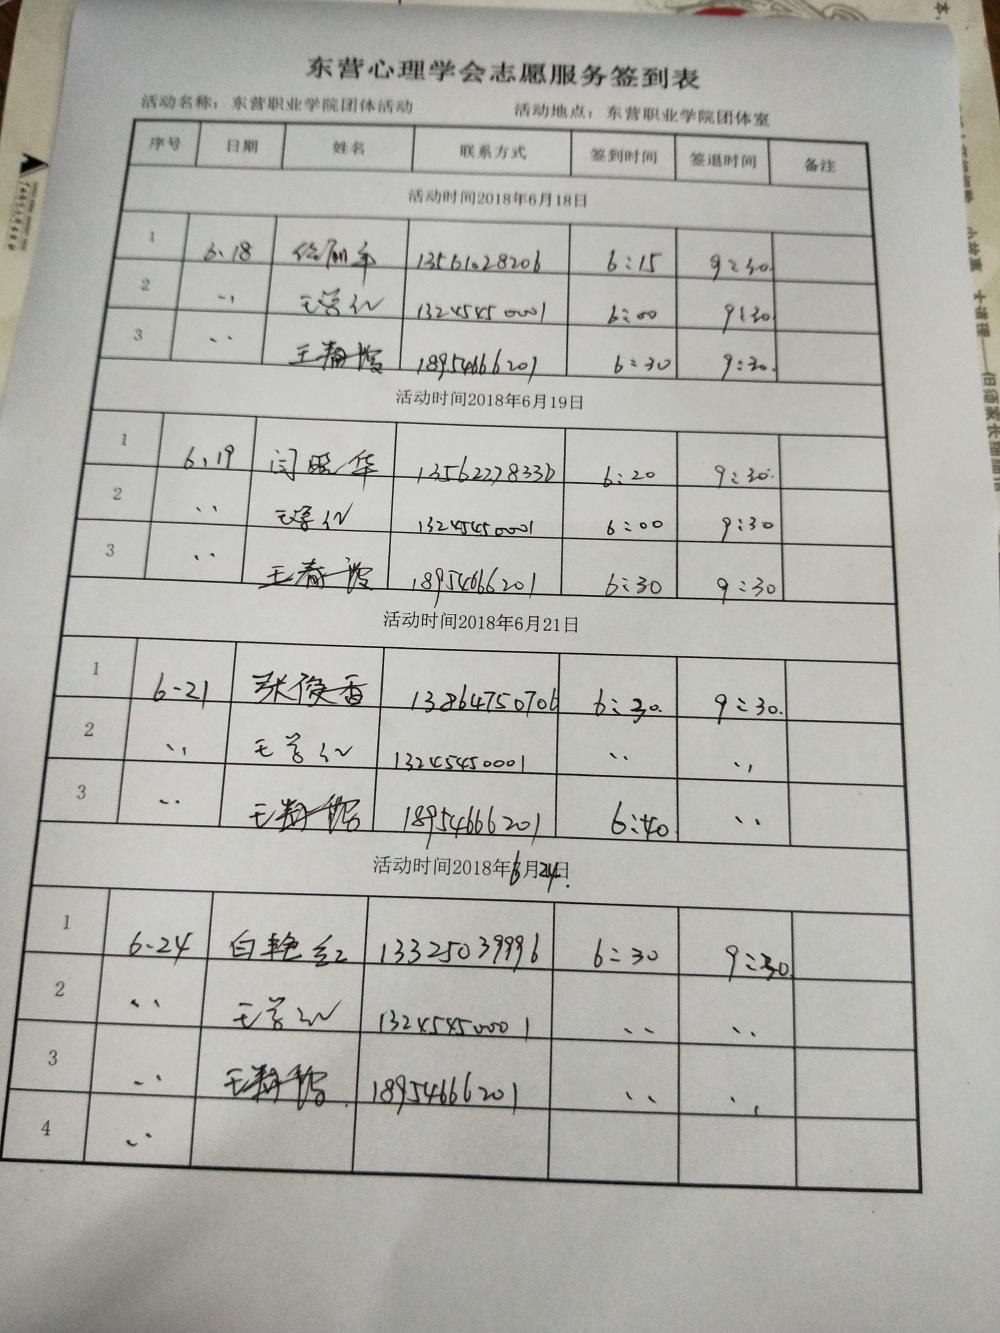 东营心理学会志愿服务签到表
活动名称：东营职业学院团体活动 活动地点：东营职业学院团体室
序号 日期 姓名 联系方式 签到时间 签退时间 备注
活动时间2018年6月18日
1 6.18 13561028206 6:15 9:30
2 〃 王学红 13245450001 6:00 9:30
3 〃 王 18954666201 6:30 9:30
活动时间2018年6月19日
1 6.19 闫昭华 13562278336 6:20 9:30
2 〃 王学红 13245450001 6:00 9:30
3 〃 王 18954666201 6:30 9:30
活动时间2018年6月21日
1 6-21 张俊香 13864750706 6:30 9:30
2 〃 王学红 13245450001 〃 〃
3 〃 王 18954666201 6:40 〃
活动时间2018年6月24日
1 6-24 白艳红 13325039996 6:30 9:30
2 〃 王学红 13245450001 〃 〃
3 〃 王 18954666201 〃 〃
4 〃